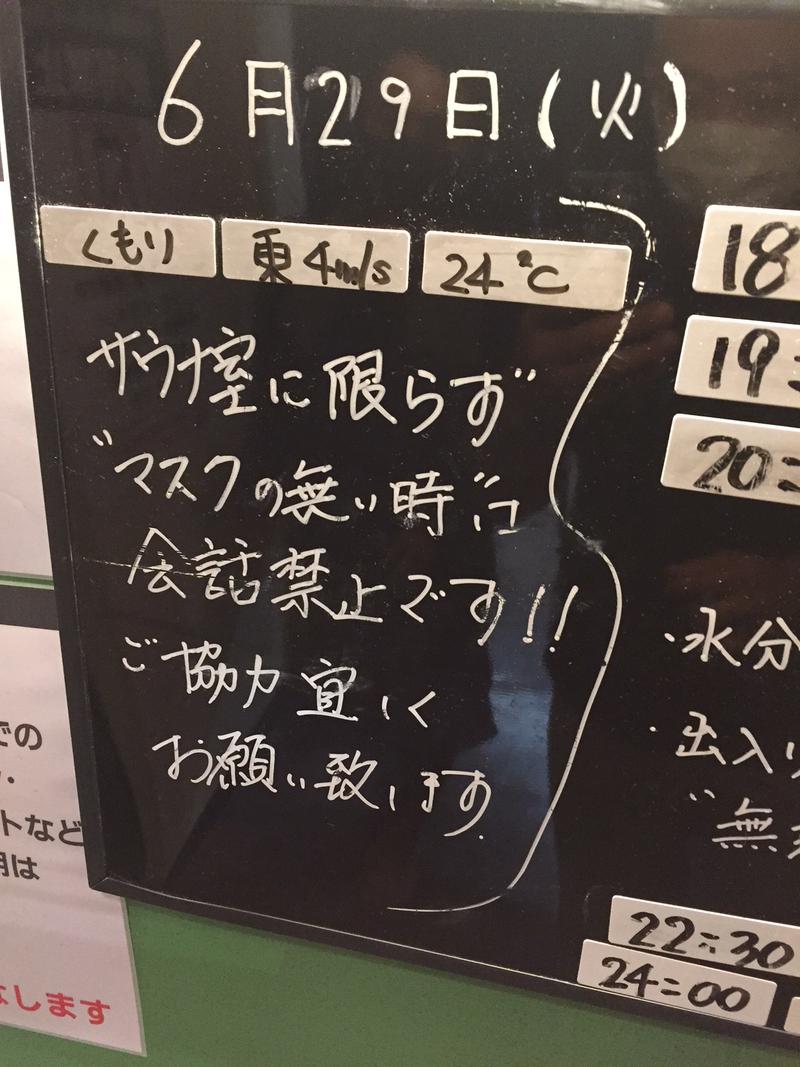 6月29日(火)
くもり 東4m/s 24℃
サウナ室に限らず
"マスクの無い時"は
会話禁止です!!
ご協力宜しく
お願い致します.
18
19:
20:
・水分
・出入り
"無
22:30
24:00
での
トなど
用は
します